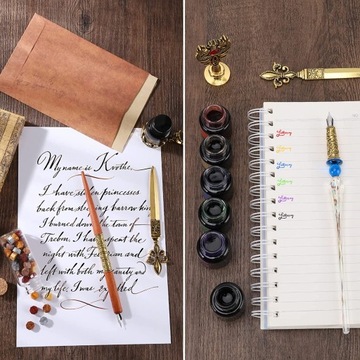 My name is Kvothe.
I have stolen princesses
back from sleeping barrow kin
I burned down the town of
Trebon. I have spent the
night with Felurian and
left with both my sanity and
my life. I was expelled
Lettering
Lettering
Lettering
Lettering
Lettering
Lettering